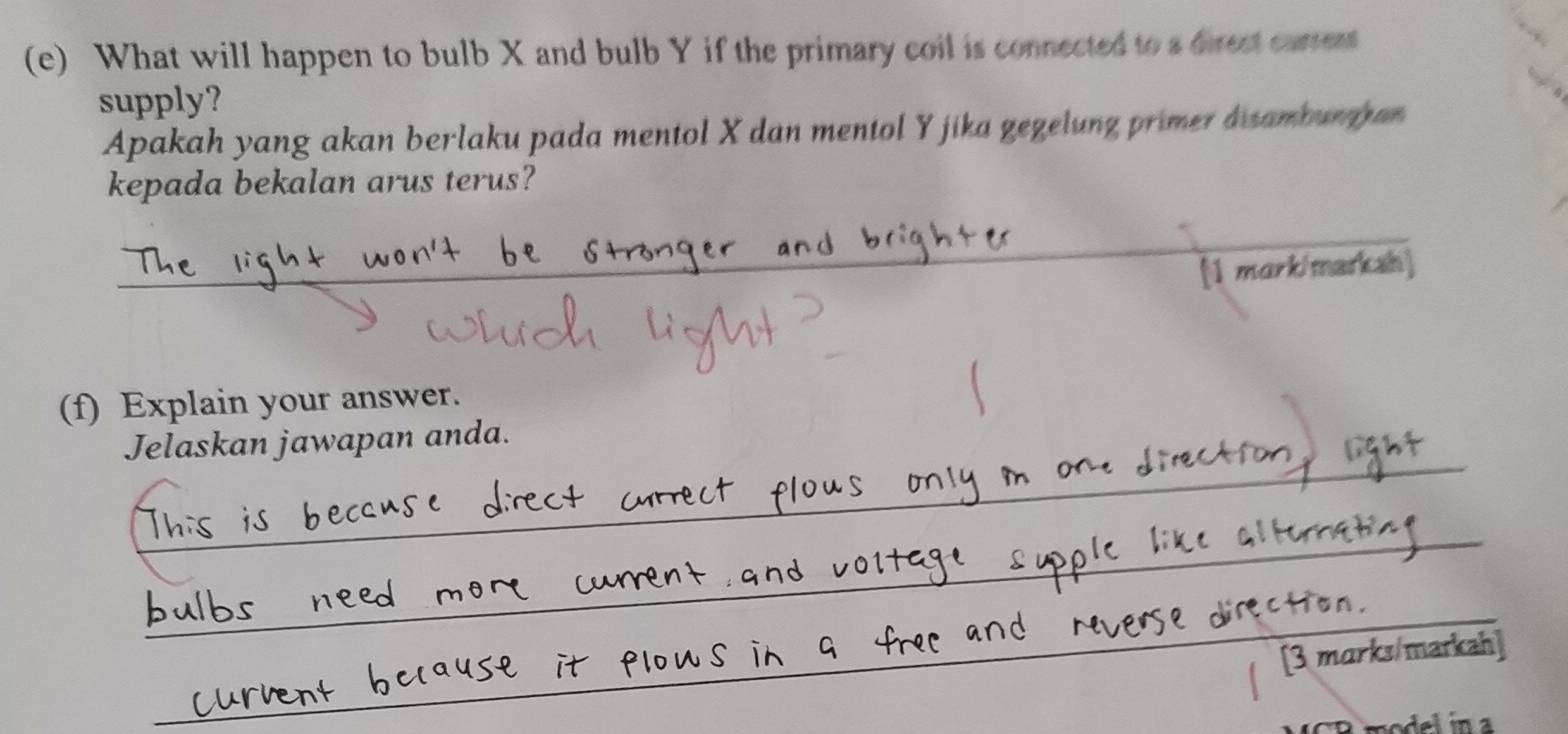 (e) What will happen to bulb X and bulb Y if the primary coil is connected to a direct current
supply?
Apakah yang akan berlaku pada mentol X dan mentol Y jika gegelung primer disambungkan
kepada bekalan arus terus?
The light won't be stronger and brighter
[1 mark/markah]
which light?
(f) Explain your answer.
Jelaskan jawapan anda.
This is because direct currect flows only in one direction, light
bulbs need more current and voltage supple like alternating
current because it flows in a free and reverse direction.
[3 marks/markah]
1
model in a